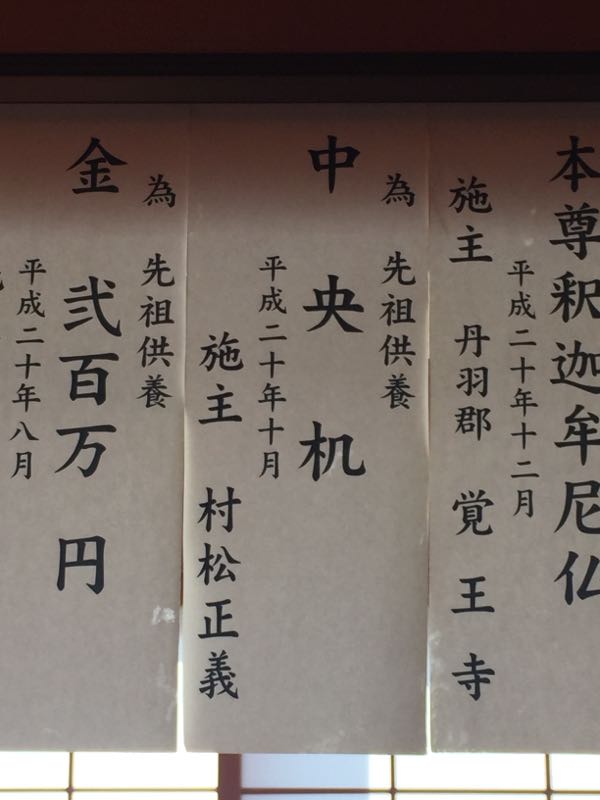 本尊釈迦牟尼仏
平成二十年十二月
施主 丹羽郡 覚王寺
為 先祖供養
中央机
平成二十年十月
施主 村松正義
為 先祖供養
金 弐百万円
平成二十年八月